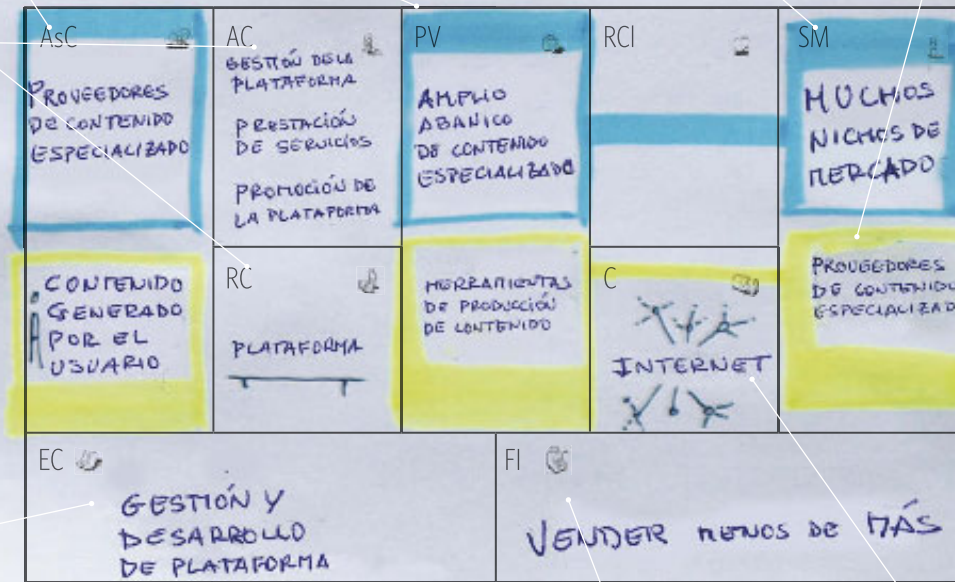 AsC
PROVEEDORES
DE CONTENIDO
ESPECIALIZADO
CONTENIDO
GENERADO
POR EL
USUARIO
AC
GESTIÓN DE LA
PLATAFORMA
PRESTACIÓN
DE SERVICIOS
PROMOCIÓN DE
LA PLATAFORMA
RC
PLATAFORMA
PV
AMPLIO
ABANICO
DE CONTENIDO
ESPECIALIZADO
HERRAMIENTAS
DE PRODUCCIÓN
DE CONTENIDO
RCl
C
INTERNET
SM
MUCHOS
NICHOS DE
MERCADO
PROVEEDORES
DE CONTENIDO
ESPECIALIZAD
EC
GESTIÓN Y
DESARROLLO
DE PLATAFORMA
FI
VENDER MENOS DE MÁS